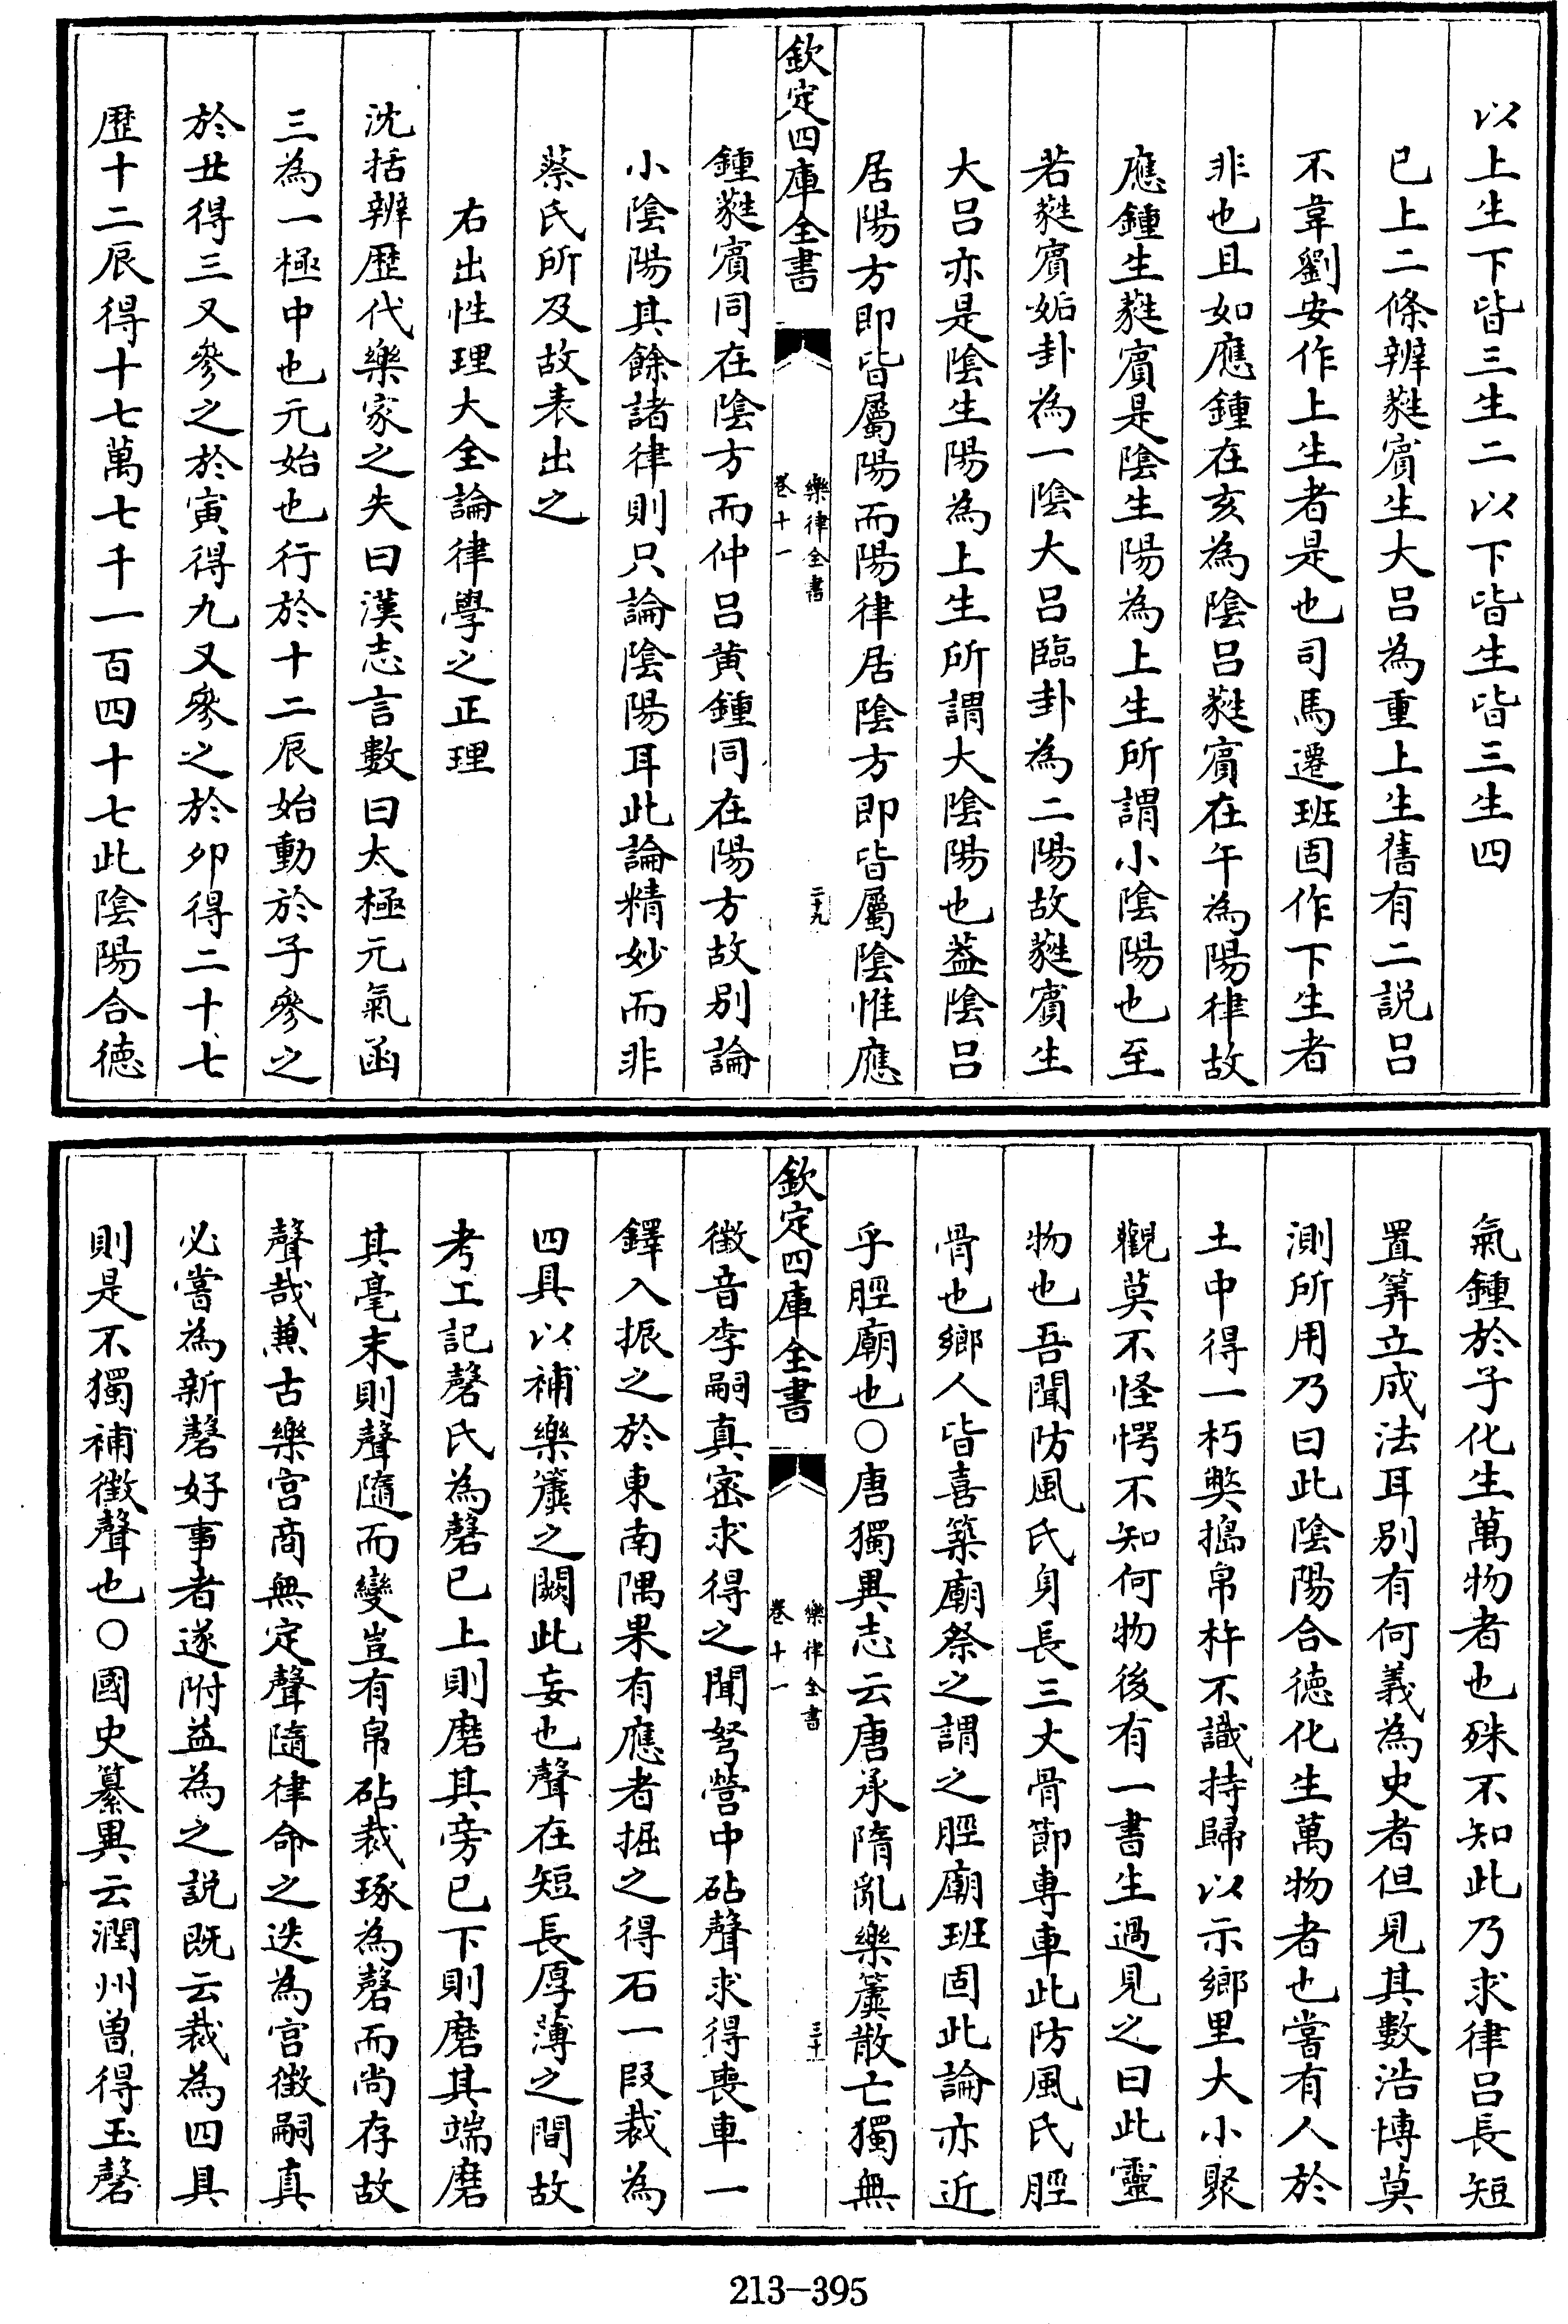 以上生下皆三生二以下皆生皆三生四
已上二條辨蕤賓生大呂為重上生舊有二説呂
不韋劉安作上生者是也司馬遷班固作下生者
非也且如應鍾在亥為陰呂蕤賓在午為陽律故
應鍾生蕤賓是陰生陽為上生所謂小陰陽也至
若蕤賓姤卦為一陰大呂臨卦為二陽故蕤賓生
大呂亦是陰生陽為上生所謂大陰陽也葢陰呂
居陽方即皆屬陽而陽律居陰方即皆屬陰惟應
欽定四庫全書
樂律全書
卷十一
二十九
鍾蕤賓同在陰方而仲呂黄鍾同在陽方故别論
小陰陽其餘諸律則只論陰陽耳此論精妙而非
蔡氏所及故表出之
右出性理大全論律學之正理
沈括辨歴代樂家之失曰漢志言數曰太極元氣函
三為一極中也元始也行於十二辰始動於子參之
於丑得三又參之於寅得九又參之於夘得二十七
歴十二辰得十七萬七千一百四十七此陰陽合徳
氣鍾於子化生萬物者也殊不知此乃求律呂長短
置筭立成法耳别有何義為史者但見其數浩博莫
測所用乃曰此陰陽合徳化生萬物者也嘗有人於
土中得一朽弊搗帛杵不識持歸以示鄉里大小聚
觀莫不怪愕不知何物後有一書生過見之曰此靈
物也吾聞防風氏身長三丈骨節専車此防風氏脛
骨也鄉人皆喜築廟祭之謂之脛廟班固此論亦近
乎脛廟也○唐獨異志云唐承隋亂樂簴散亡獨無
欽定四庫全書
樂律全書
卷十一
三十
徵音李嗣真密求得之聞弩營中砧聲求得喪車一
鐸入振之於東南隅果有應者掘之得石一段裁為
四具以補樂簴之闕此妄也聲在短長厚薄之間故
考工記磬氏為磬已上則磨其旁已下則磨其端磨
其毫末則聲隨而變豈有帛砧裁琢為磬而尚存故
聲哉兼古樂宫商無定聲隨律命之迭為宫徵嗣真
必嘗為新磬好事者遂附益為之説既云裁為四具
則是不獨補徵聲也○國史纂異云潤州曽得玉磬
213-395